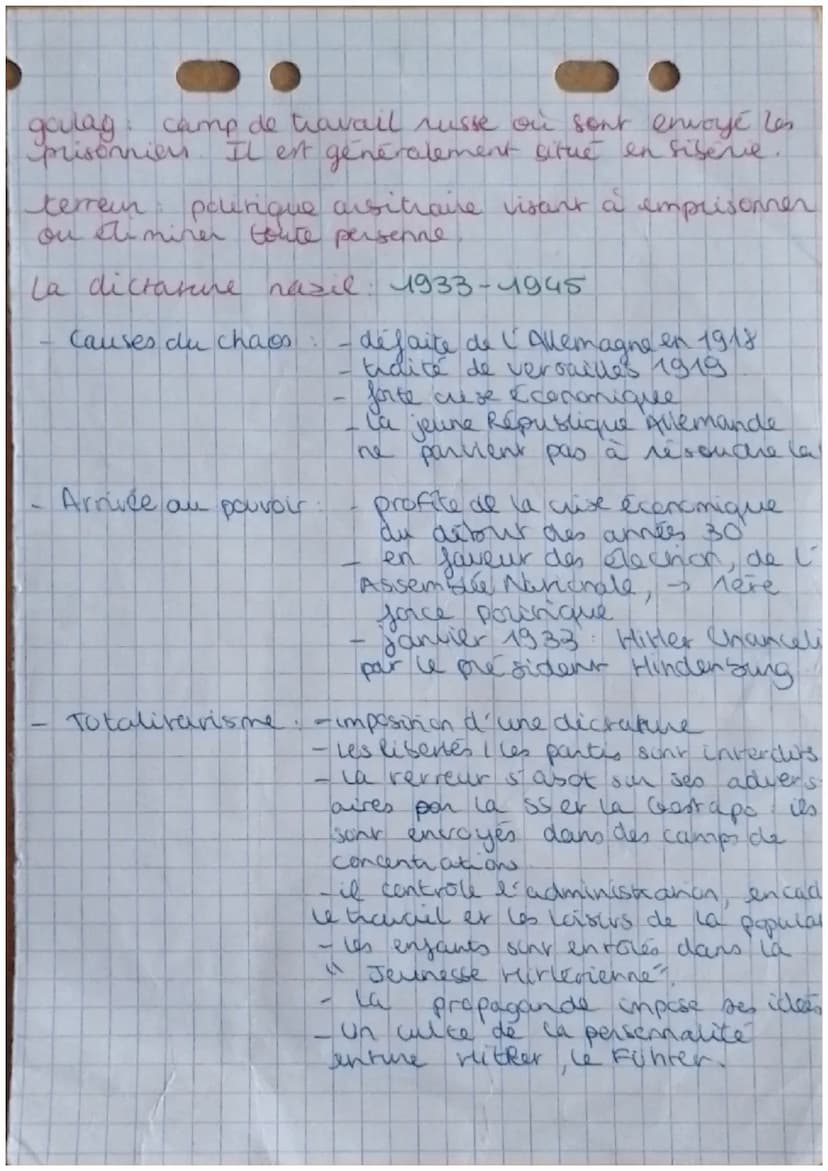 goulag : camp de travail russe où sont envoyé les
prisonniers. Il est généralement situé en sibérie.
terreur : politique arbitraire visant à emprisonner
ou éliminer toute personne.
La dictature nazie : 1933-1945
- Causes du chaos : - défaite de l'Allemagne en 1918
- traité de versailles 1919
- forte crise Économique
- La jeune République Allemande
ne parvient pas à résoudre la
- Arrivée au pouvoir : - profite de la crise économique
du début des années 30
- en faveur des élection, de l'
Assemblée Nationale, → 1ère
force politique
- janvier 1933 : Hitler Chanceli
par le président Hindenburg
- Totalitarisme : - imposition d'une dictature
- les libertés / les partis sont interdits
- La terreur s'abat sur ses advers-
aires par la SS et la Gestapo : ils
sont envoyés dans des camps de
concentrations
- il contrôle l'administration, encad
le travail et les loisirs de la popula
- les enfants sont enrôlés dans la
" Jeunesse Hitlérienne".
- La propagande impose ses idées
- Un culte de la personnalité
enture Hitler, le Führer.